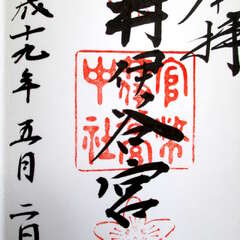 奉拝
井伊谷宮
官幣
中社
成十九年 五月 二日